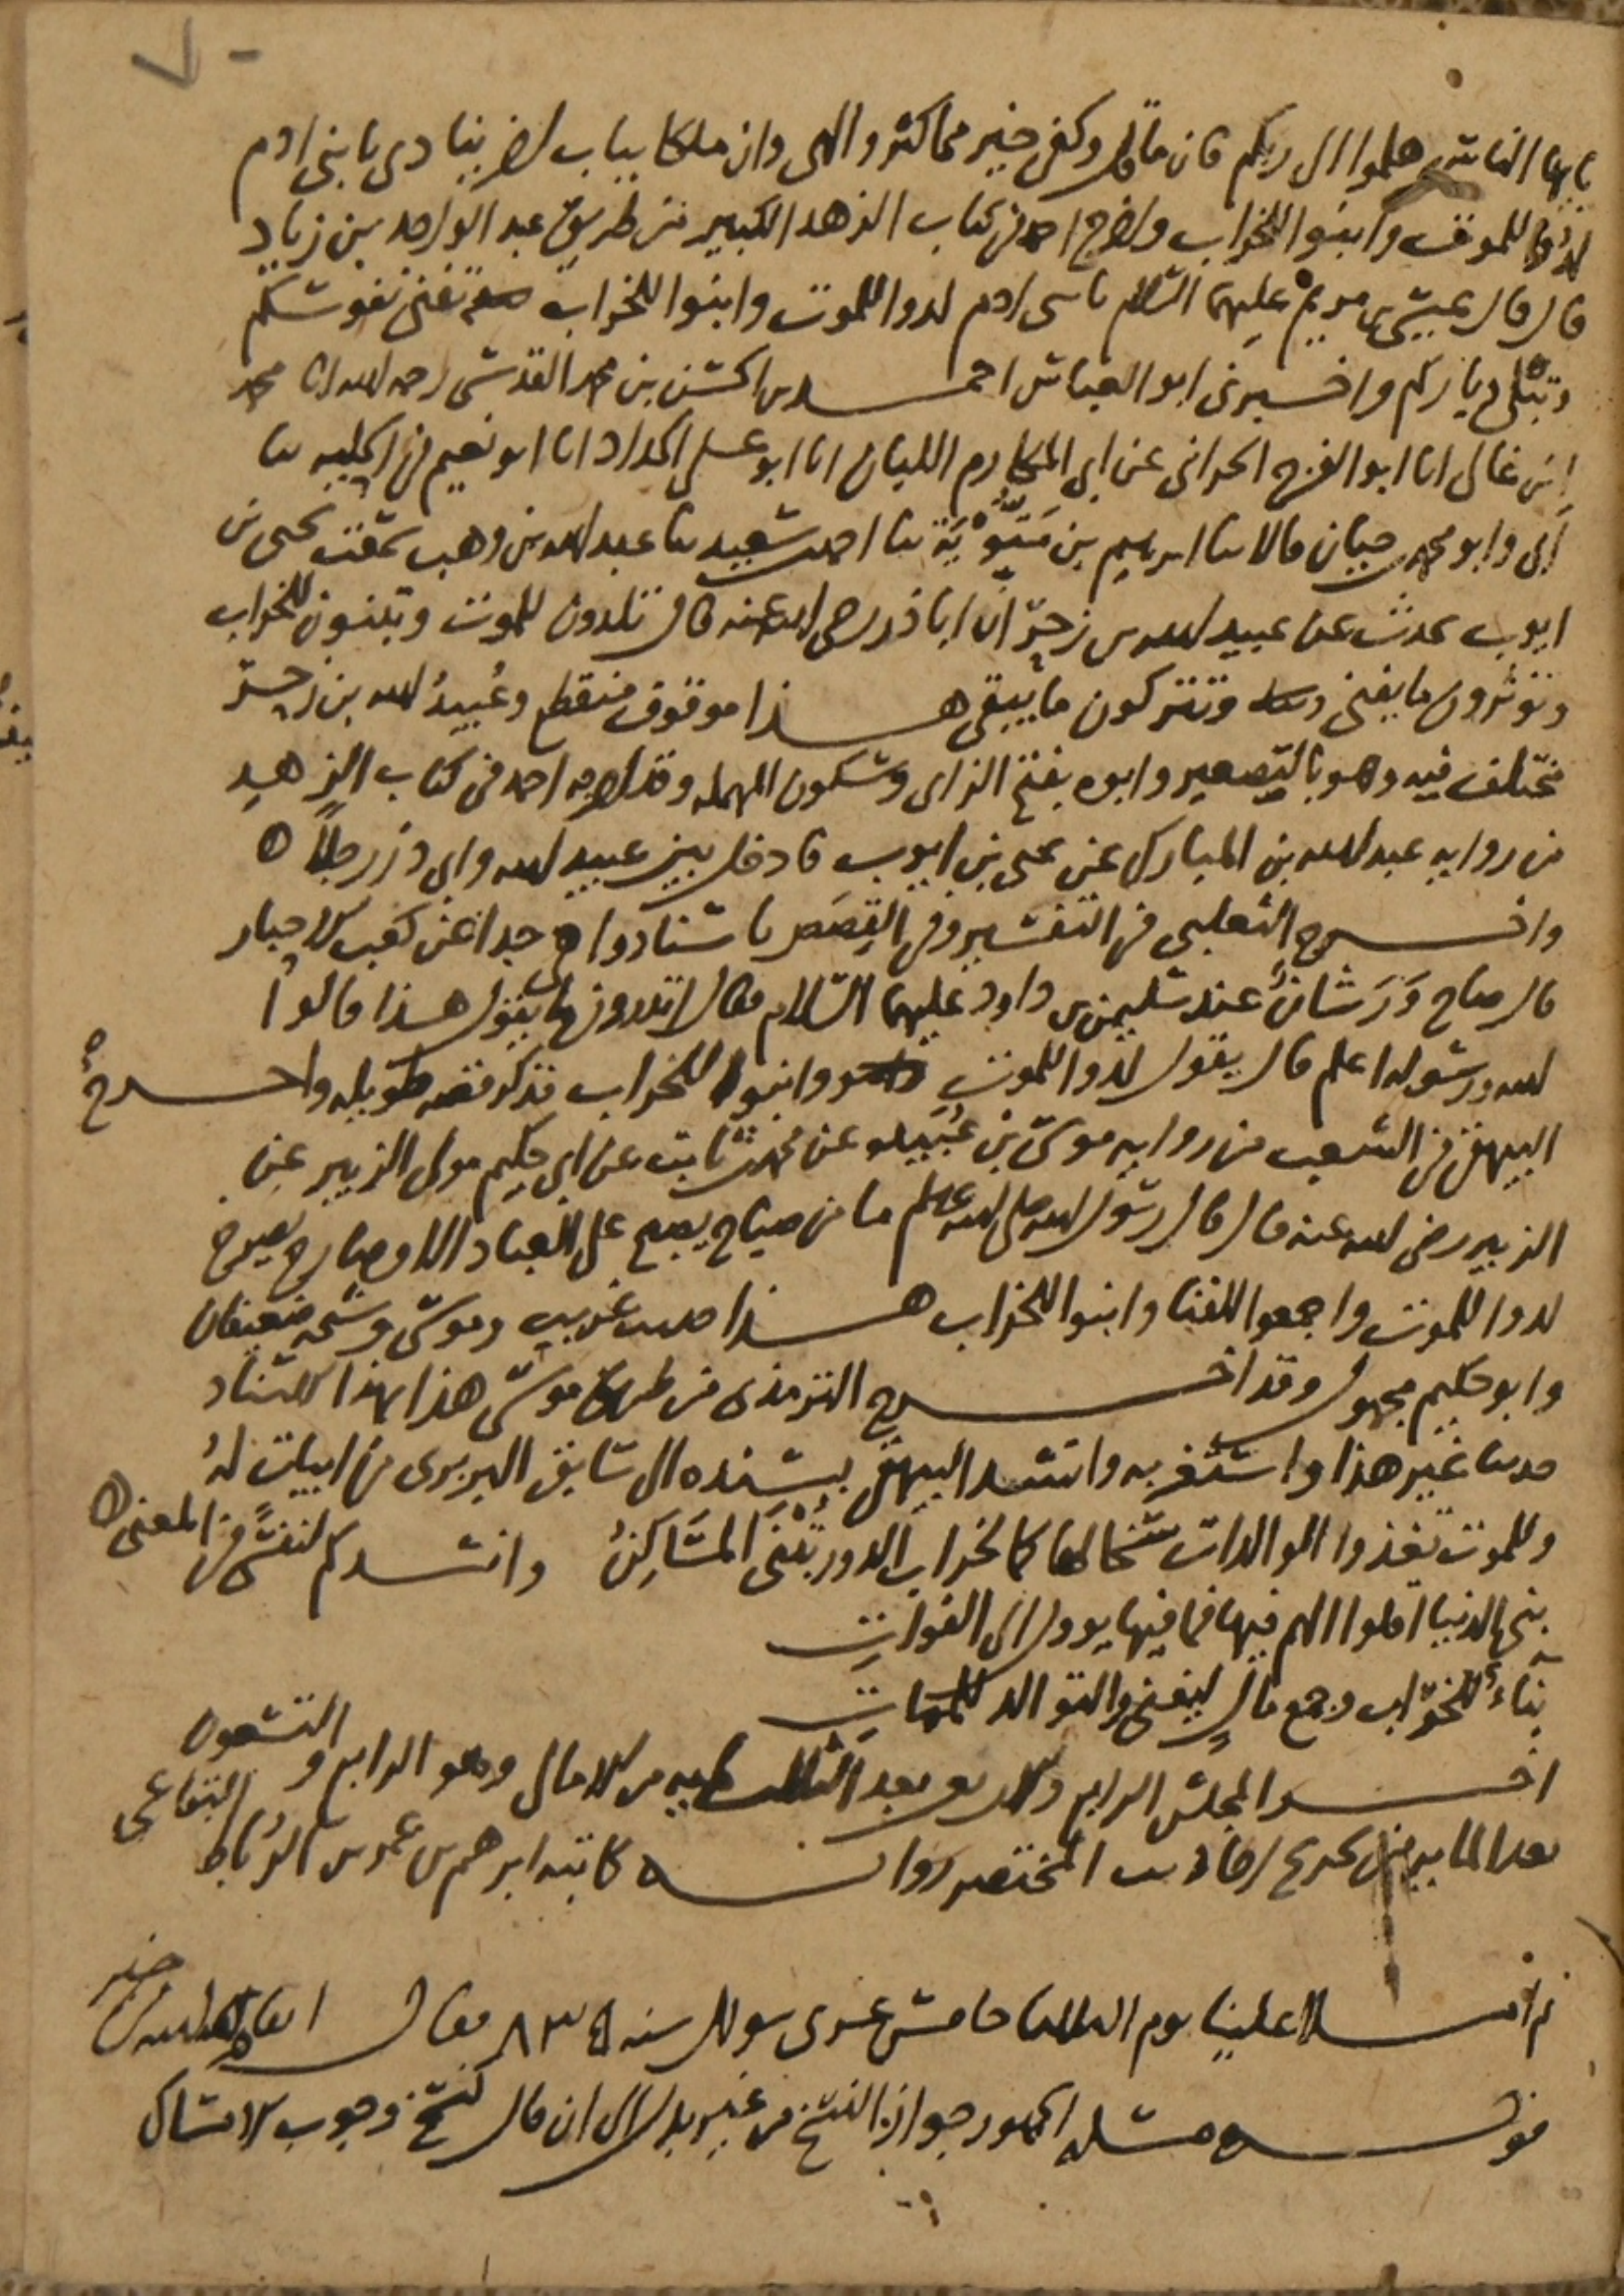 ٧٠
يايها الناس هلموا الى ربكم فان ما قل وكفى خير مما كثر والهى وان ملكا بباب اخر ينادى يا بنى ادم
لدوا للموت وابنوا للخراب واخرج احمد فى كتاب الزهد الكبير من طريق عبد الواحد بن زياد
قال قال عيسى بن مريم عليهما السلام يا بنى ادم لدوا للموت وابنوا للخراب تفنى نفوسكم
وتبلى دياركم واخبرنى ابو العباس احمد بن الحسن بن محمد القدسى رحمه الله انا محمد
ابن غالى انا ابو الفرج الحرانى عن ابى المكارم اللبان انا ابو على الحداد انا ابو نعيم فى الحلية ثنا
ابى وابو محمد بن حيان قالا ثنا ابرهيم بن متويه ثنا احمد بن سعيد ثنا عبد الله بن وهب سمعت يحيى بن
ايوب يحدث عن عبيد الله بن زحر ان ابا ذر رضى الله عنه قال تلدون للموت وتبنون للخراب
وتؤثرون ما يفنى وتتركون ما يبقى هذا موقوف منقطع وعبيد الله بن زحر
مختلف فيه وهو بالتصغير وابوه بفتح الزاى وسكون المهمله وقد اخرجه احمد فى كتاب الزهد
من روايه عبد الله بن المبارك عن يحيى بن ايوب فادخل بين عبيد الله وابى ذر رجلا
واخرج الثعلبى فى التفسير وفى القصص باسناد واه جدا عن كعب الاحبار
قال صاح ورشان عند سليمن بن داود عليهما السلام فقال اتدرون ما يقول هذا قالوا
الله ورسوله اعلم قال يقول لدوا للموت وابنوا للخراب فذكر قصه طويله واخرج
البيهقى فى الشعب من روايه موسى بن عبيده عن محمد بن ثابت عن ابى حكيم مولى الزبير عن
الزبير رضى الله عنه قال قال رسول الله صلى الله عليه وسلم ما من صباح يصبح على العباد الا وصارخ يصرخ
لدوا للموت واجمعوا للفنا وابنوا للخراب هذا حديث غريب وموسى وشيخه ضعيفان
وابو حكيم مجهول وقد اخرج الترمذى من طريق موسى هذا بهذا الاسناد
حديثا غير هذا واستغربه وانشد البيهقى بسنده الى سابق البربرى من ابيات له
وللموت تغذوا الوالدات سخالها كما لخراب الدور تبنى المساكن وانشدكم لنفسى فى المعنى
بنى الدنيا اقلوا الهم فيها فما فيها يوول الى الفوات
بناء للخراب وجمع مال ليفنى والتوالد للممات
اخر المجلس الرابع والاربعين بعد الثلثمايه من الامالى وهو الرابع والتسعون
بعد المايه من تخريج احاديث المختصر رواية كاتبه ابرهيم بن عمر بن الرباط البقاعى
ثم املا علينا يوم الثلاثا خامس عشرى شوال سنه ٨٣٥ فقال
قوله مسله الجمهور جواز النسخ من غير بدل الى ان قال كنسخ وجوب الامساك